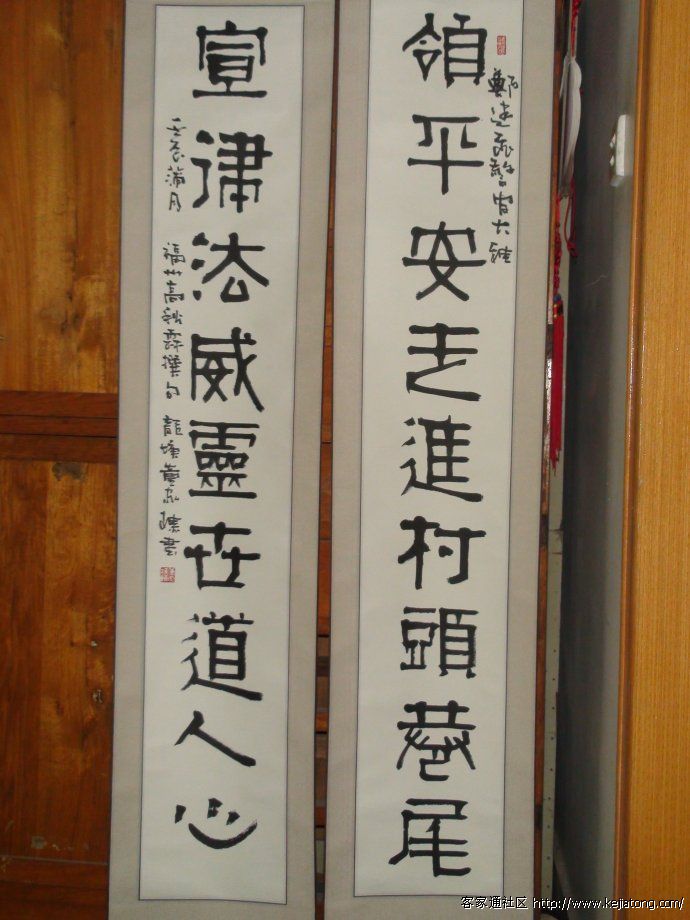 領平安走進村頭巷尾
鄭 警官大雅
宣律法威靈世道人心
壬辰蒲月 福州高秋霖撰句 龍塘董 書
客家通社区 http://www.kejiatong.com/